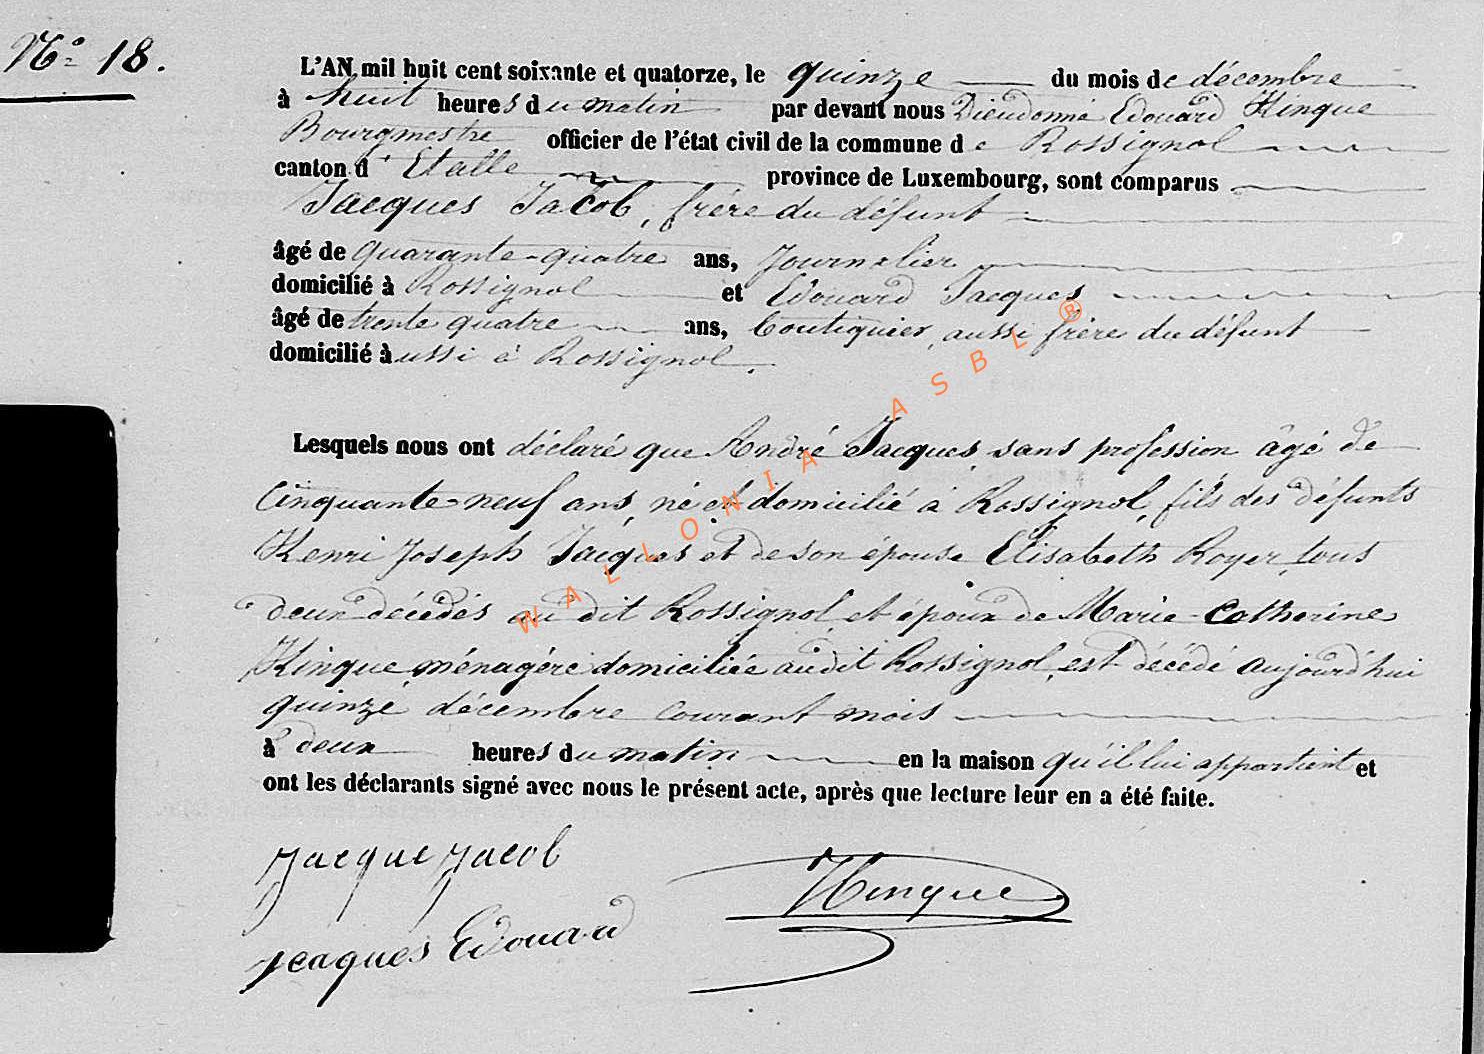 N° 18.
L'AN mil huit cent soixante et quatorze, le quinze du mois de décembre
à huit heures du matin par devant nous Dieudonné Edouard Hinque
Bourgmestre officier de l'état civil de la commune de Rossignol
canton d'Etalle province de Luxembourg, sont comparus
Jacques Jacob, frère du défunt
âgé de quarante-quatre ans, Journalier
domicilié à Rossignol et Edouard Jacques
âgé de trente quatre ans, boutiquier, aussi frère du défunt
domicilié aussi à Rossignol.
Lesquels nous ont déclaré que André Jacques, sans profession âgé de
Cinquante-neuf ans, né et domicilié à Rossignol, fils des défunts
Henri Joseph Jacques et de son épouse Elisabeth Royer, tous
deux décédés au dit Rossignol, et époux de Marie-Catherine
Hinque, ménagère domiciliée audit Rossignol, est décédé aujourd'hui
quinze décembre courant mois
à deux heures du matin en la maison qu'il lui appartient et
ont les déclarants signé avec nous le présent acte, après que lecture leur en a été faite.
Jacque Jacob
Hinque
Jeaques Edouard
WALLONIA ASBL ®